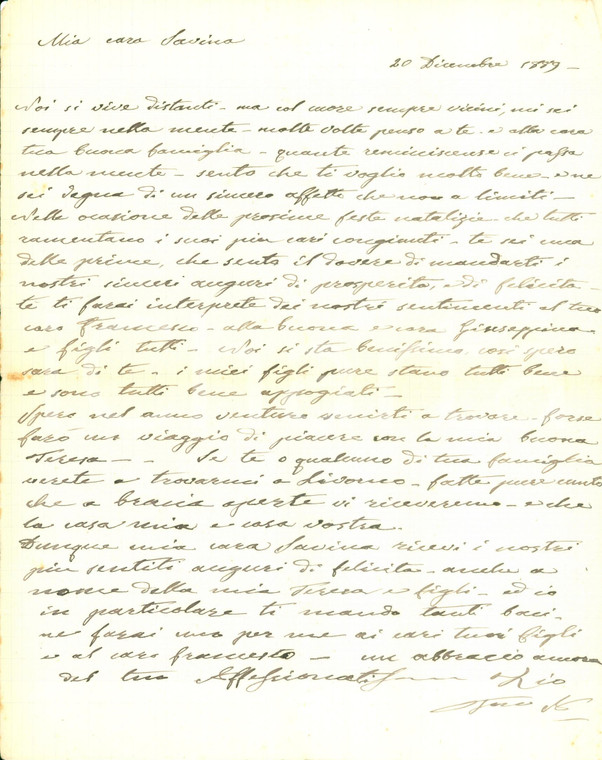 Mia cara Savina
20 Dicembre 1889 –
Noi si vive distanti – ma col core sempre vicini, mi sei
sempre nella mente – molte volte penso a te – e alla cara
tua buona famiglia – quante reminiscense ci passa
nella mente – sento che ti voglio molto bene – e ne
sei degna di un sincero affetto che non a limiti –
Nelle ocasione delle prosime feste natalizie – che tutti
ramentano i suoi piu cari congiunti – te sei una
delle prime, che sento il dovere di mandarti i
nostri sinceri auguri di prosperita, e di felicita –
te ti farai interprete dei nostri sentimenti al tuo
caro Francesco – alla buona e cara Giuseppina
e figli tutti – Noi si sta benissimo, cosi spero
sara di te – i miei figli pure stano tutti bene
e sono tutti bene appogiati –
Spero nel anno venturo venirti a trovare – forse
farò un viaggio di piacere con la mia buona
Teresa – – Se te o qualcuno di tua famiglia
verete a trovarmi a Livorno – fatte pure conto
che a bracia aperte vi riceveremo – e che
la casa mia e casa vostra.
Dunque mia cara Savina ricevi i nostri
piu sentiti auguri di felicita – anche a
nome della mia Teresa e figli – ed io
in particolare ti mando tanti baci –
ne farai uno per me ai cari tuoi figli
e al caro Francesco – un abbracio ancora
del tuo Affesionatissimo Zio